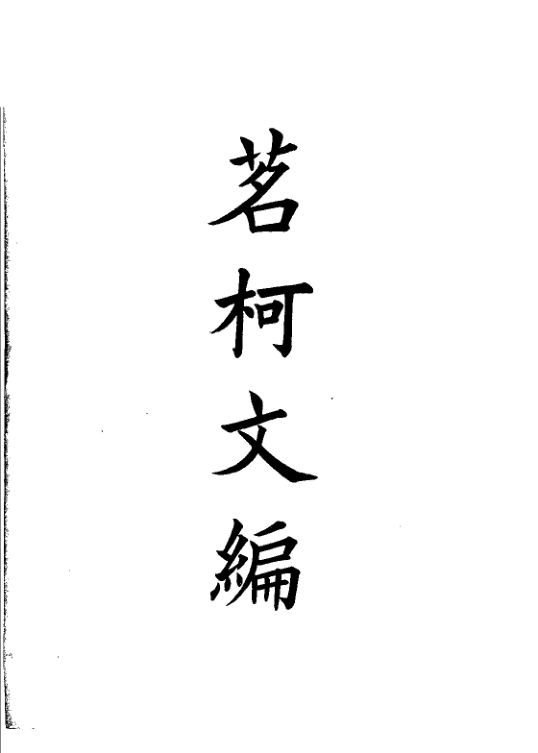 茗柯文編